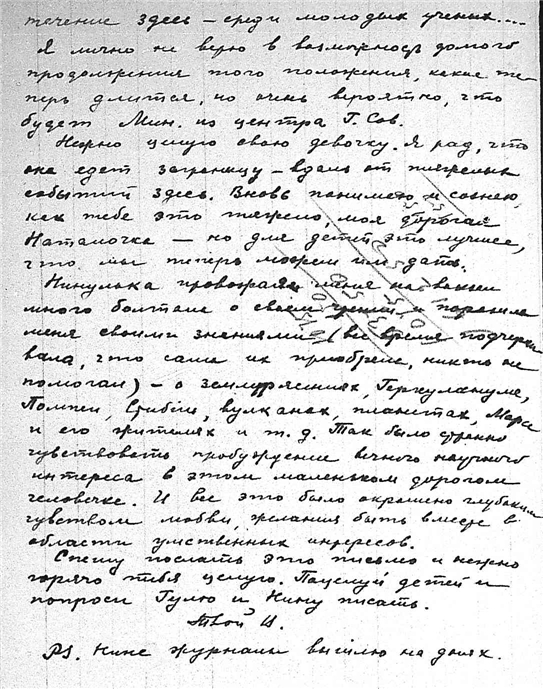 течение здесь – среди молодых ученых....
Я лично не верю в возможность долгого
продолжения того положения, какое те-
перь длится, но очень вероятно, что
будет Мин. из центра Г. Сов.
Нежно целую свою девочку. Я рад, что
она едет заграницу – вдаль от тяжелых
событий здесь. Вновь понимаю и сознаю
как тебе это тяжело, моя дорогая
Наталочка – но для детей это лучшее,
что мы теперь можем им дать.
Нинулька провожая меня на вокзал
много болтала о своем чтении и поразила
меня своими знаниями (все время подчерки
вала, что сама их приобрела, никто не
помогал) – о землетрясениях, Геркулануме,
Помпеи, вулканах, планетах, Марсе
и его жителях и т. д. Так было странно
чувствовать пробуждение вечного научного
интереса в этом маленьком дорогом
человечке. И все это было окрашено глубоким
чувством любви, желания быть вместе в
области умственных интересов.
Спешу послать это письмо и нежно
горячо тебя целую. Поцелуй детей и
попроси Гулю и Нину писать.
Твой В.
PS. Нине журналы вышлю на днях.